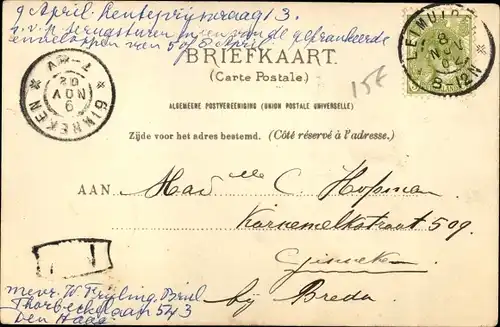 9 April Renteprijsvraag 13.
z.v.p. terugsturen in een van de gefrankeerde
enveloppen van 5 of 6 April
BRIEFKAART.
(Carte Postale.)
15E
ALGEMEENE POSTVEREENIGING (UNION POSTALE UNIVERSELLE)
Zijde voor het adres bestemd. (Côté réservé à l'adresse.)
GINNEKEN
9 NOV 02
LEIMUIDEN
8 NOV 02
8-12N
AAN Mad elle C. Hopman
Karnemelkstraat 509.
Ginneken
bij Breda
mevr. W.
Thorbeckelaan 543
Den Haag